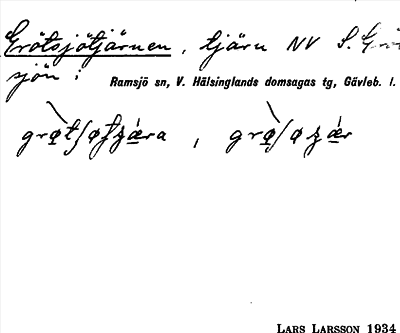 Grötsjötjärnen, tjärn NV S. Gröt
sjön i Ramsjö sn, V. Hälsinglands domsagas tg, Gävleb. l.
LARS LARSSON 1934